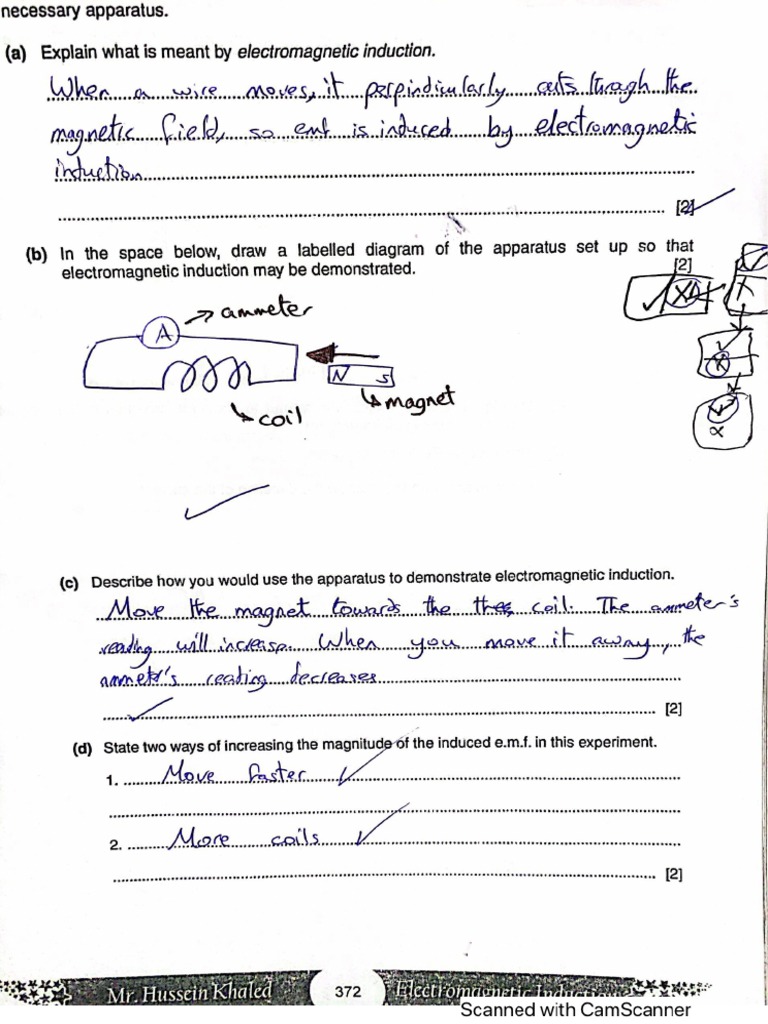 necessary apparatus.
(a) Explain what is meant by electromagnetic induction.
When a wire moves, it perpindicularly cuts through the
magnetic field, so emf is induced by electromagnetic
induction
[2]
(b) In the space below, draw a labelled diagram of the apparatus set up so that
electromagnetic induction may be demonstrated.
[2]
A
ammeter
N S
magnet
coil
(c) Describe how you would use the apparatus to demonstrate electromagnetic induction.
Move the magnet towards the coil. The ammeter's
reading will increase. When you move it away, the
ammeter's reading decreases
[2]
(d) State two ways of increasing the magnitude of the induced e.m.f. in this experiment.
1. Move faster
2. More coils
[2]
Mr. Hussein Khaled 372 Electromagnetic Induction
Scanned with CamScanner